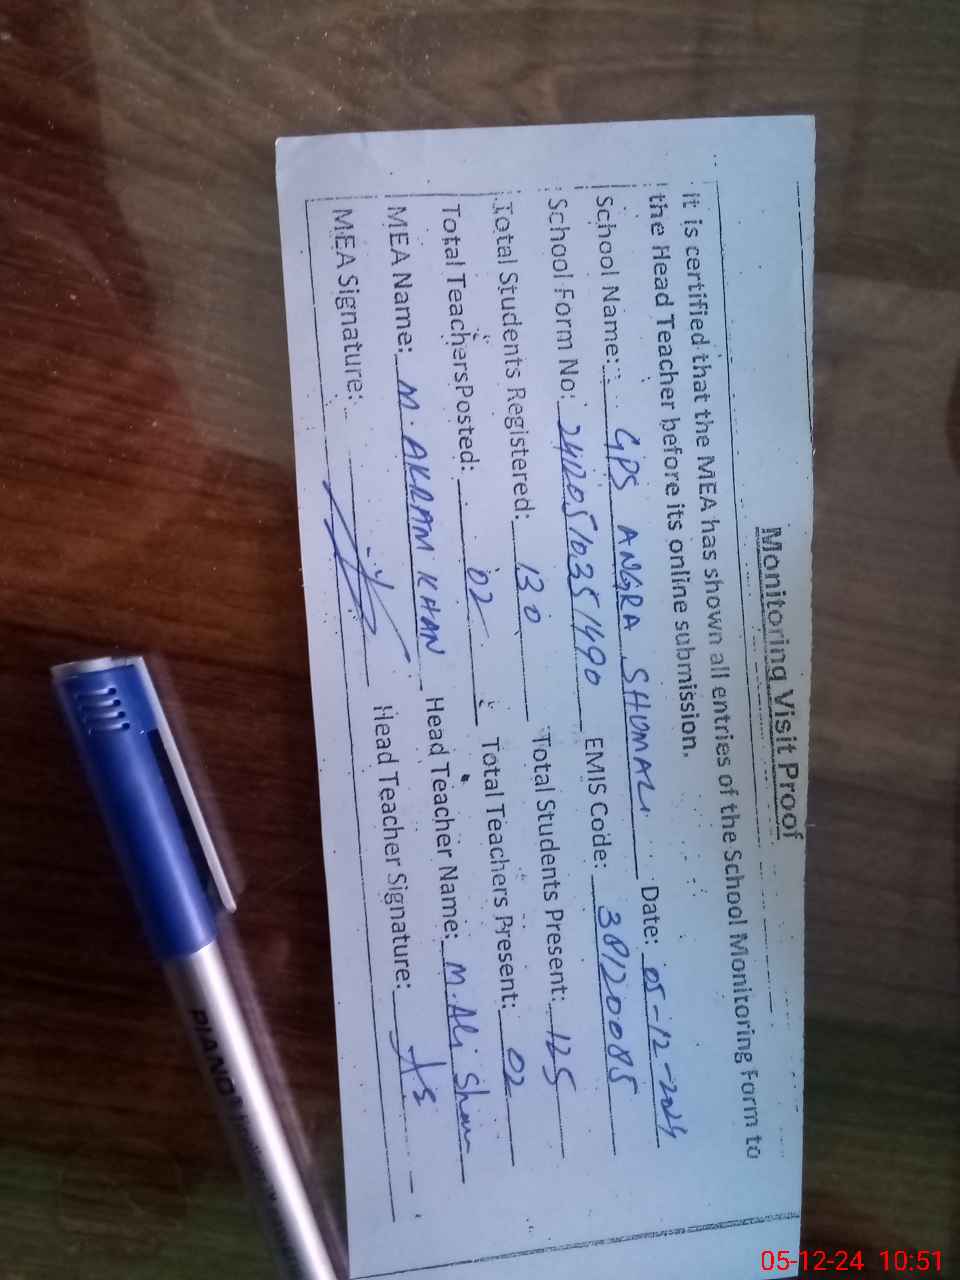 Monitoring Visit Proof
it is certified that the MEA has shown all entries of the School Monitoring Form to
the Head Teacher before its online submission.
School Name: GPS ANGRA SHUMALI Date: 05-12-2024
School Form No: EMIS Code: 38120085
Total Students Registered: 130 Total Students Present: 125
Total Teachers Posted: 02 Total Teachers Present: 02
MEA Name: M. AKRAM KHAN Head Teacher Name: M. Ali Shan
MEA Signature: Head Teacher Signature:
PIANO
05-12-24 10:51